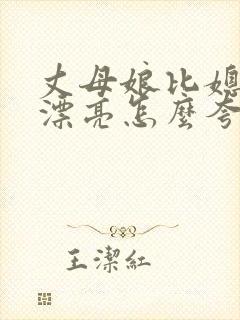 丈母娘比媳
漂亮怎麽夸
王潔紅